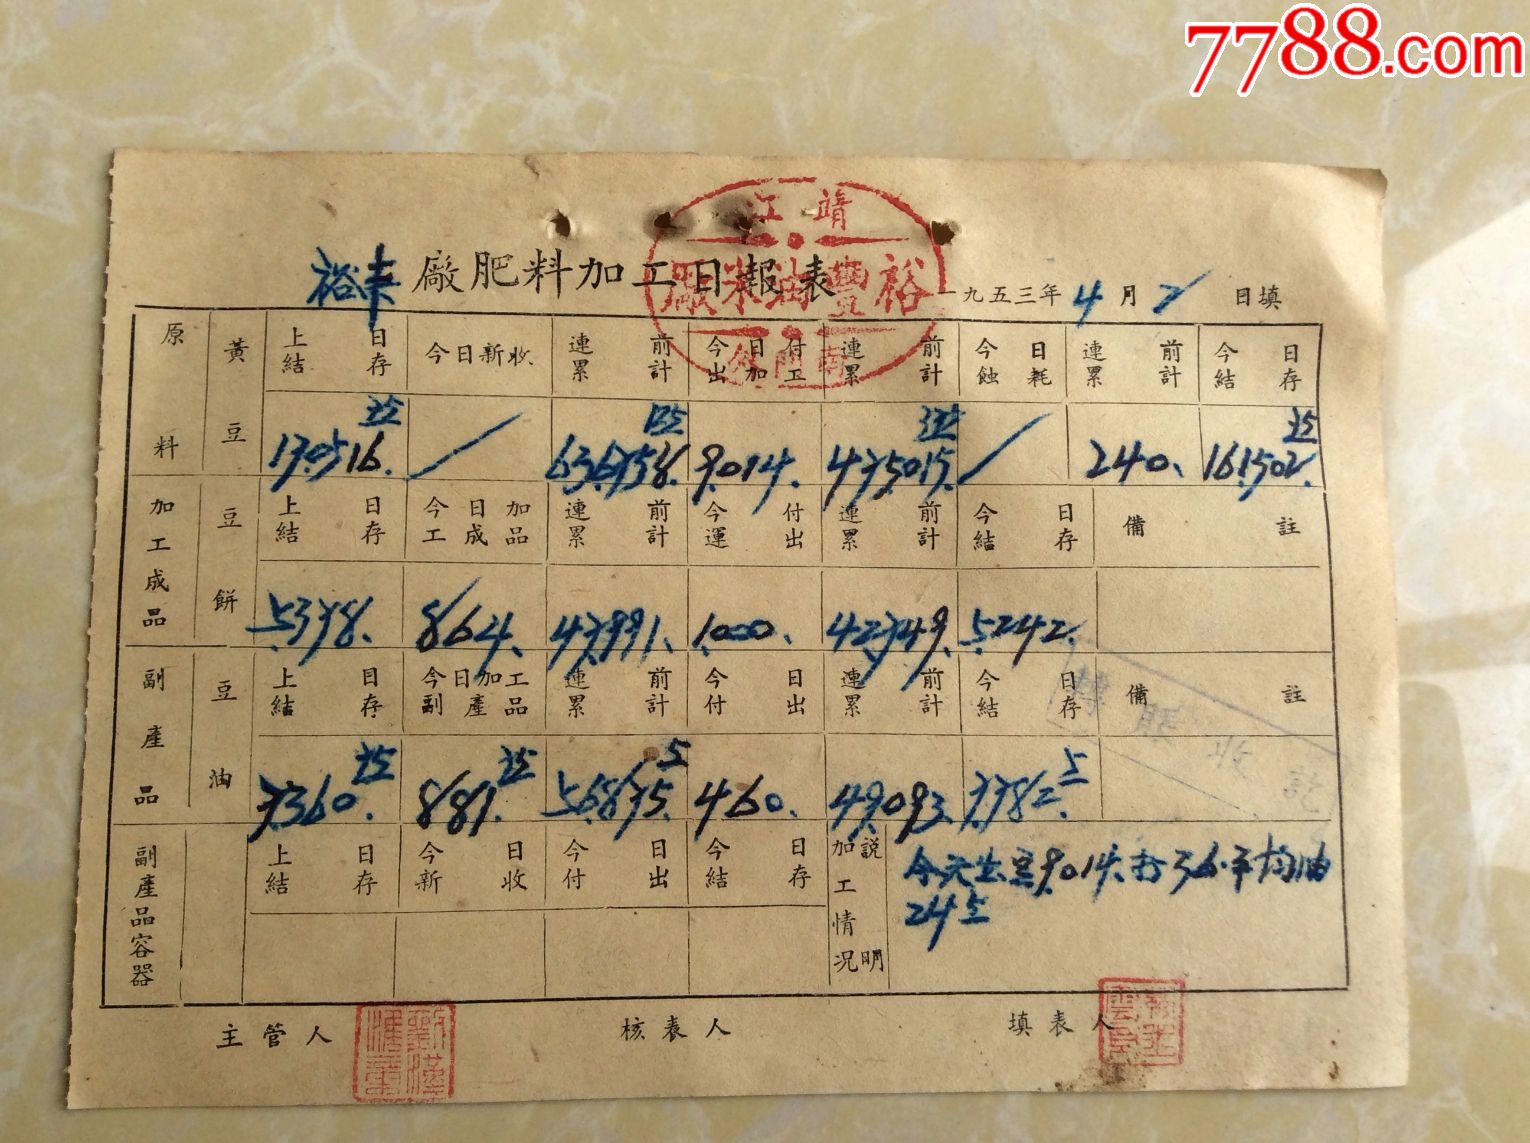 7788.com
靖江
裕豐油米廠
南門外
裕 廠肥料加工日報表 一九五三年4月2日填
原料 黃豆 上日結存 今日新收 連前累計 今日付出加工 連前累計 今日蝕耗 連前累計 今日結存
9014. 240. 
加工成品 豆餅 上日結存 今日加工成品 連前累計 今付運出 連前累計 今日結存 備註
5378. 864. 47991. 1000. 42749. 5242.
副產品 豆油 上日結存 今日加工副產品 連前累計 今日付出 連前累計 今日結存 備註
7360. 881. 56875. 460. 49093. 7782
副產品容器 上日結存 今日新收 今日付出 今日結存 加工情況說明
豆9014. 36. 平均油
24
收訖
主管人 核表人 填表人